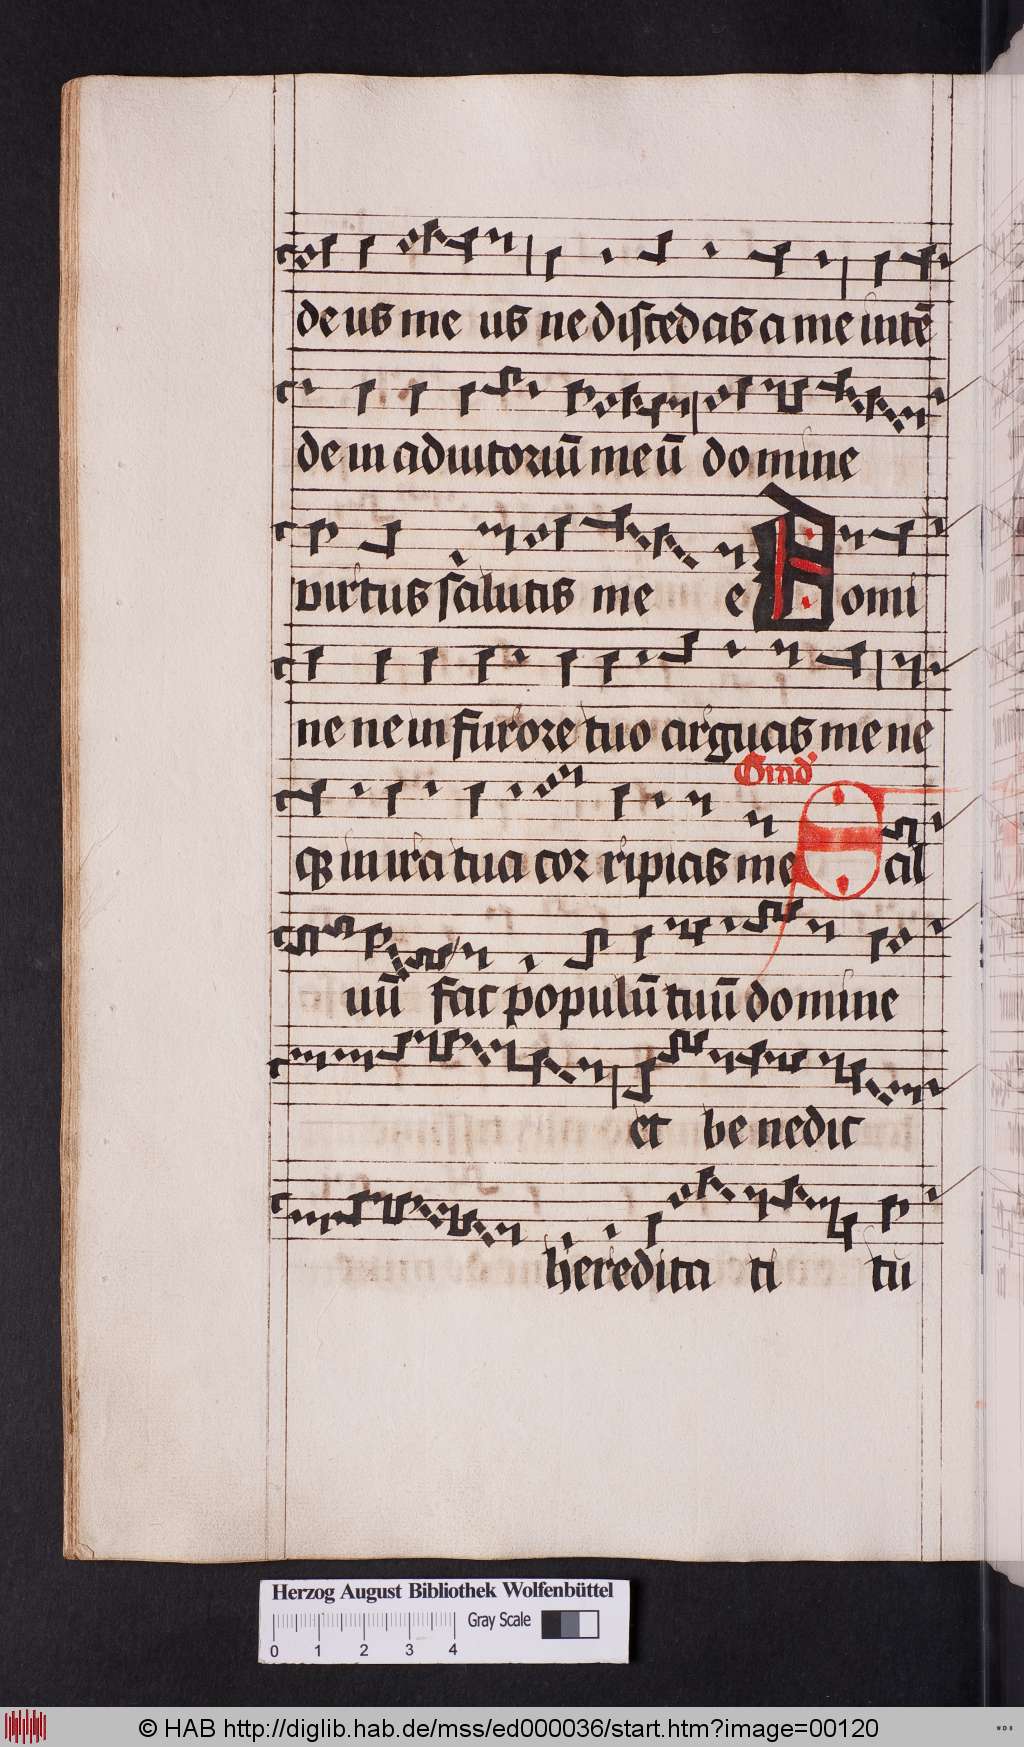 deus me us ne discedas a me intē
de in adiutoriū meū domine
virtus salutis me e Domi
ne ne in furore tuo arguas me ne
q in ira tua cor ripias me Sal
Grad'
uū fac populū tuū domine
et be nedic
heredita ti tu
Herzog August Bibliothek Wolfenbüttel
0 1 2 3 4 Gray Scale
© HAB http://diglib.hab.de/mss/ed000036/start.htm?image=00120